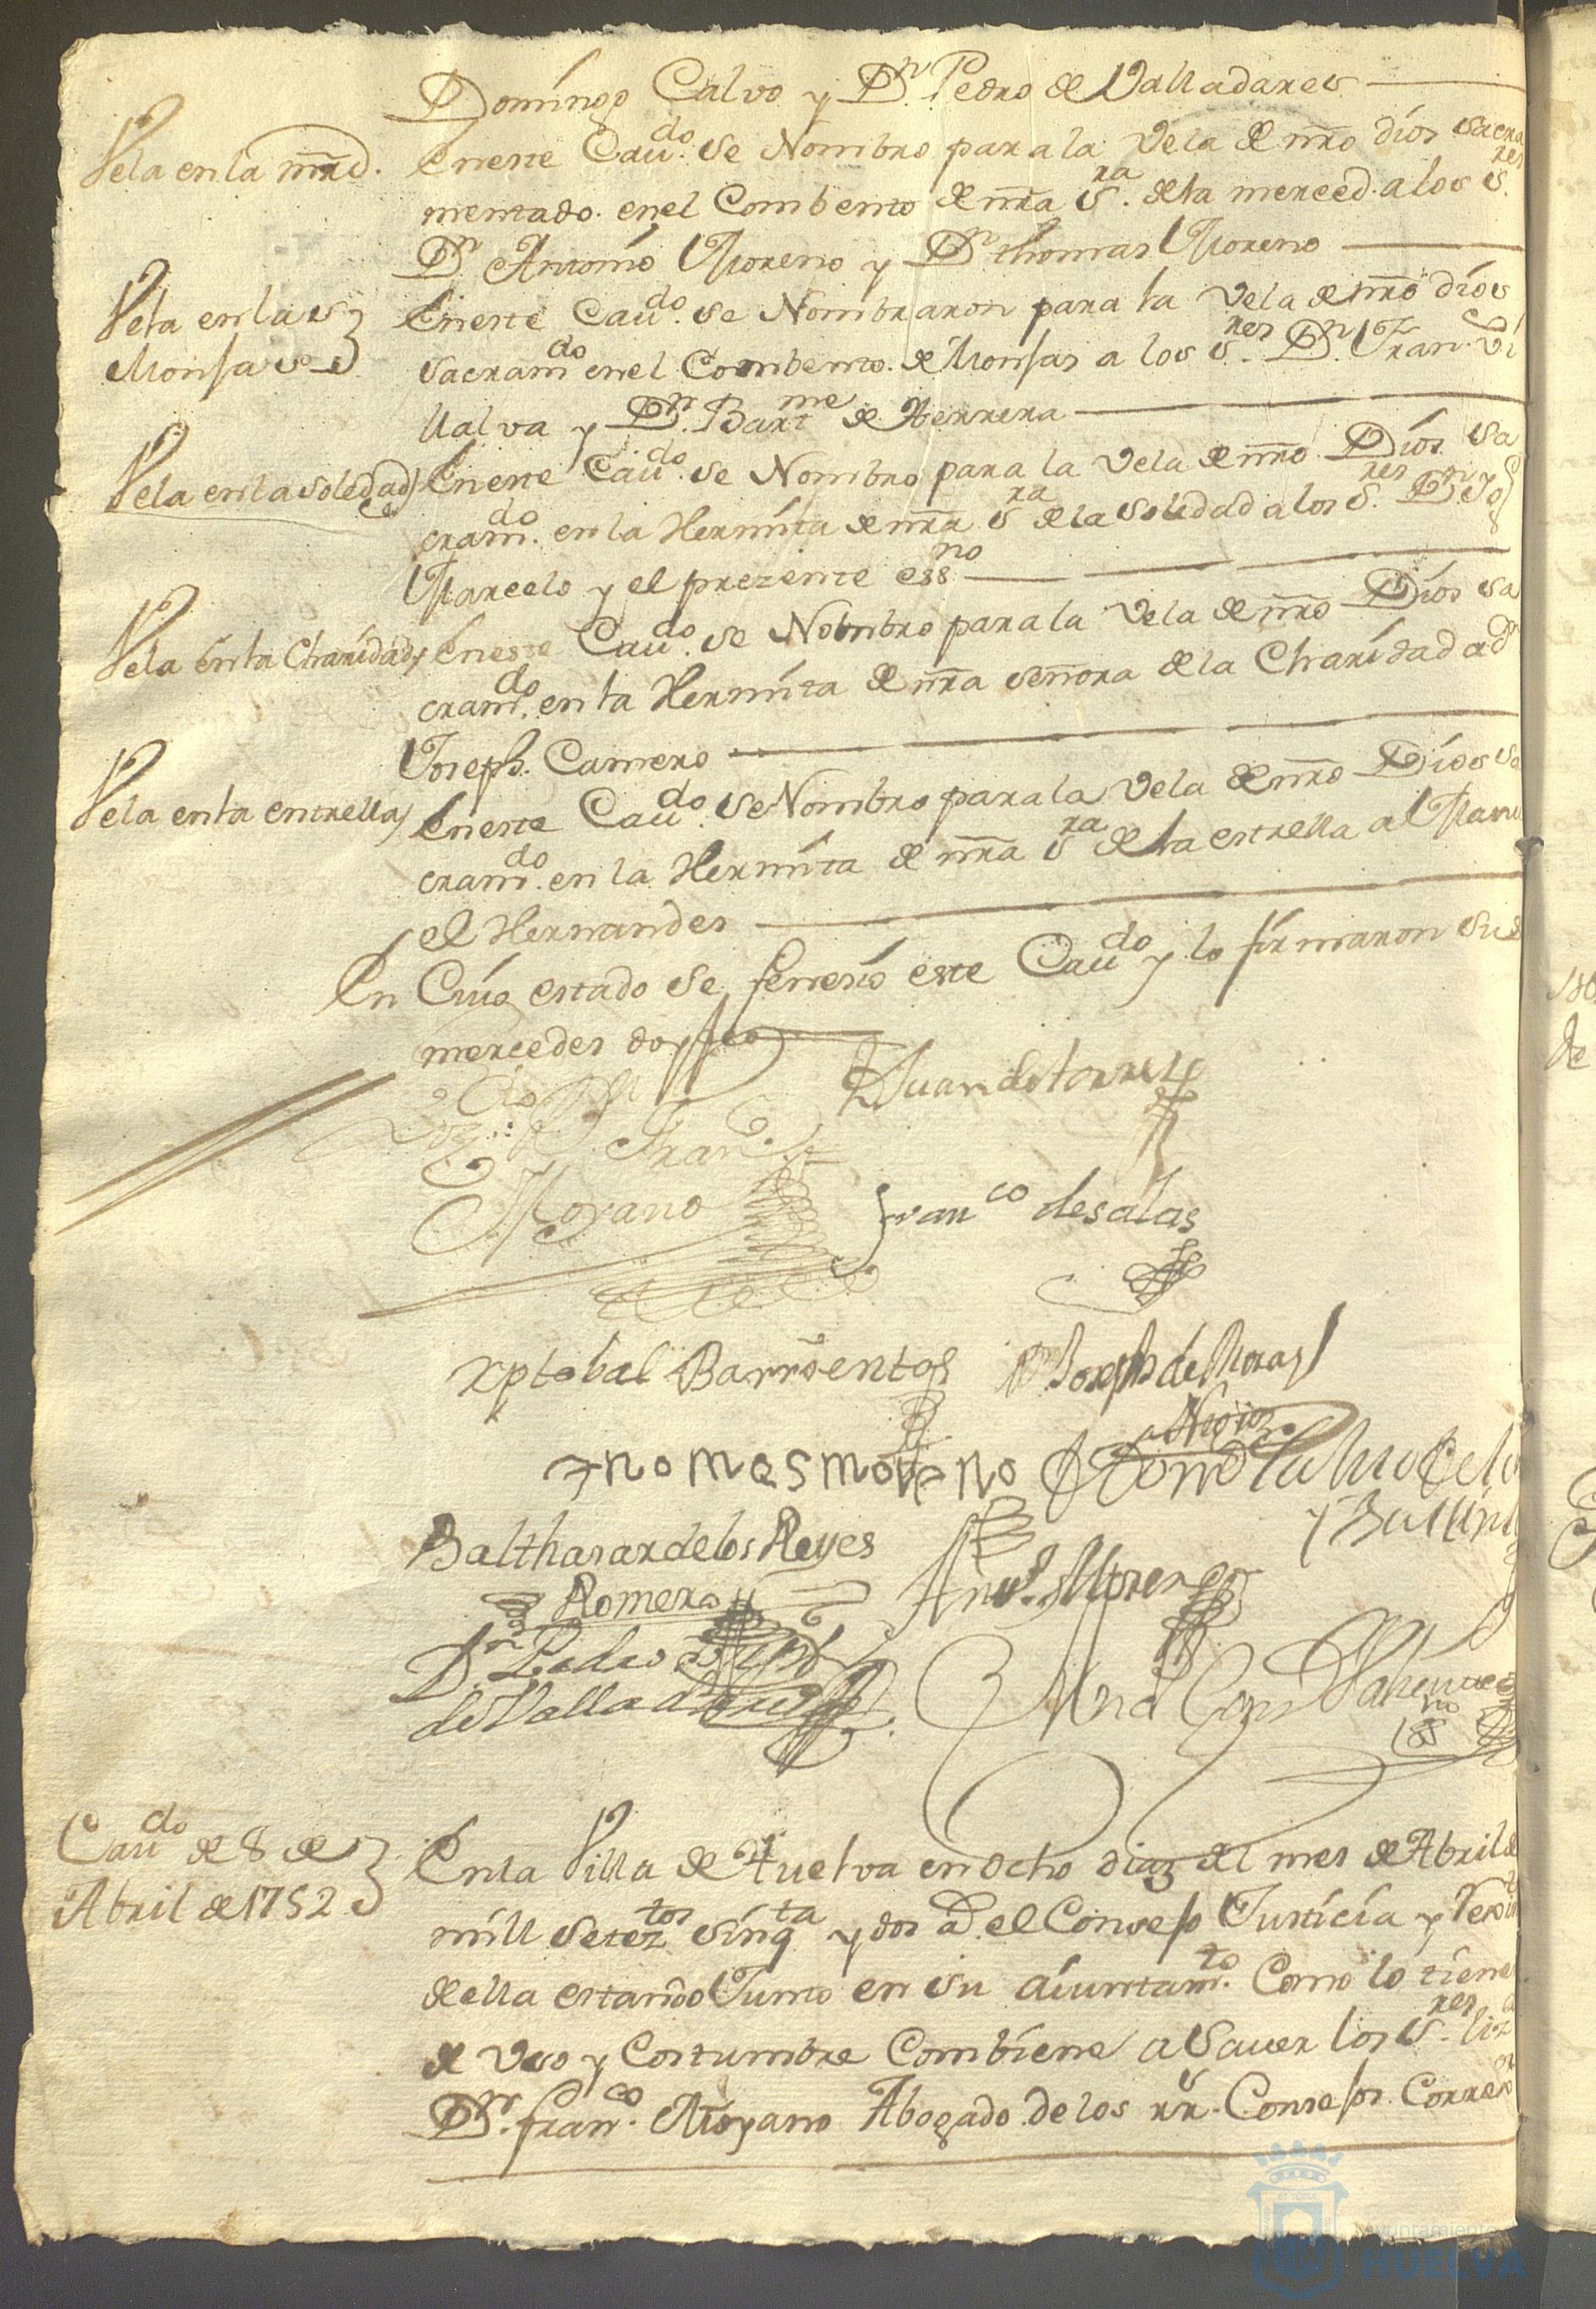 Domingo Calvo y Dn. Pedro de Valladares
Vela en la mrd.
En este Caudo. se Nombro para la Vela de nro dios sacra
mentado. en el Combento de nra sra. de la merced. a los sres.
Dn Antonio Moreno y Dn thomas Moreno
Vela en las
Monjas
En este Caudo. se Nombraron para la Vela de nro dios
sacramdo en el Combento. de Monjas a los sres. Dn. Fran. Vi
llalva y Dn. Bartme de Herrera
Vela en la soledad
En este Caudo. se Nombro para la Vela de nro Dios sa
cramdo. en la Hermita de nra sra de la soledad a los sres. Dn Jos
Marcelo y el prezente essno
Vela en la Charidad
En este Caudo. se Nombro para la Vela de nro Dios sa
cramdo. en la Hermita de nra señora de la Charidad a dn
Joseph. Camero
Vela en la entrella
En este Caudo. se Nombro para la Vela de nro Dios sa
cramdo. en la Hermita de nra sra de la estrella a Manu
el Hernandes
En Cuio estado se feneció este Caudo y lo firmaron sus
mercedes doy fee
Juan de torres
Lizdo. Dn Franco.
Moyano
Franco de salas
xptobal Barrientos
Joseph de Moray
thomas moreno
Balthasar de los Reyes
Romero
Anto. Moreno
Dn Pedro
de Valladares
Caudo de 8 de
Abril de 1752
En la Villa de Huelva en ocho dias del mes de Abril de
mill seteztos sinqta y dos a. el Consejo Justicia y Rexim
de ella estando Junto en su aiuntamto. Como lo tiene
de Uso y Costumbre Combiene a Saver los sres. liz
Dn. franco. Moyano Abogado de los rrs. Consejos. Correxor
Ayuntamiento
HUELVA